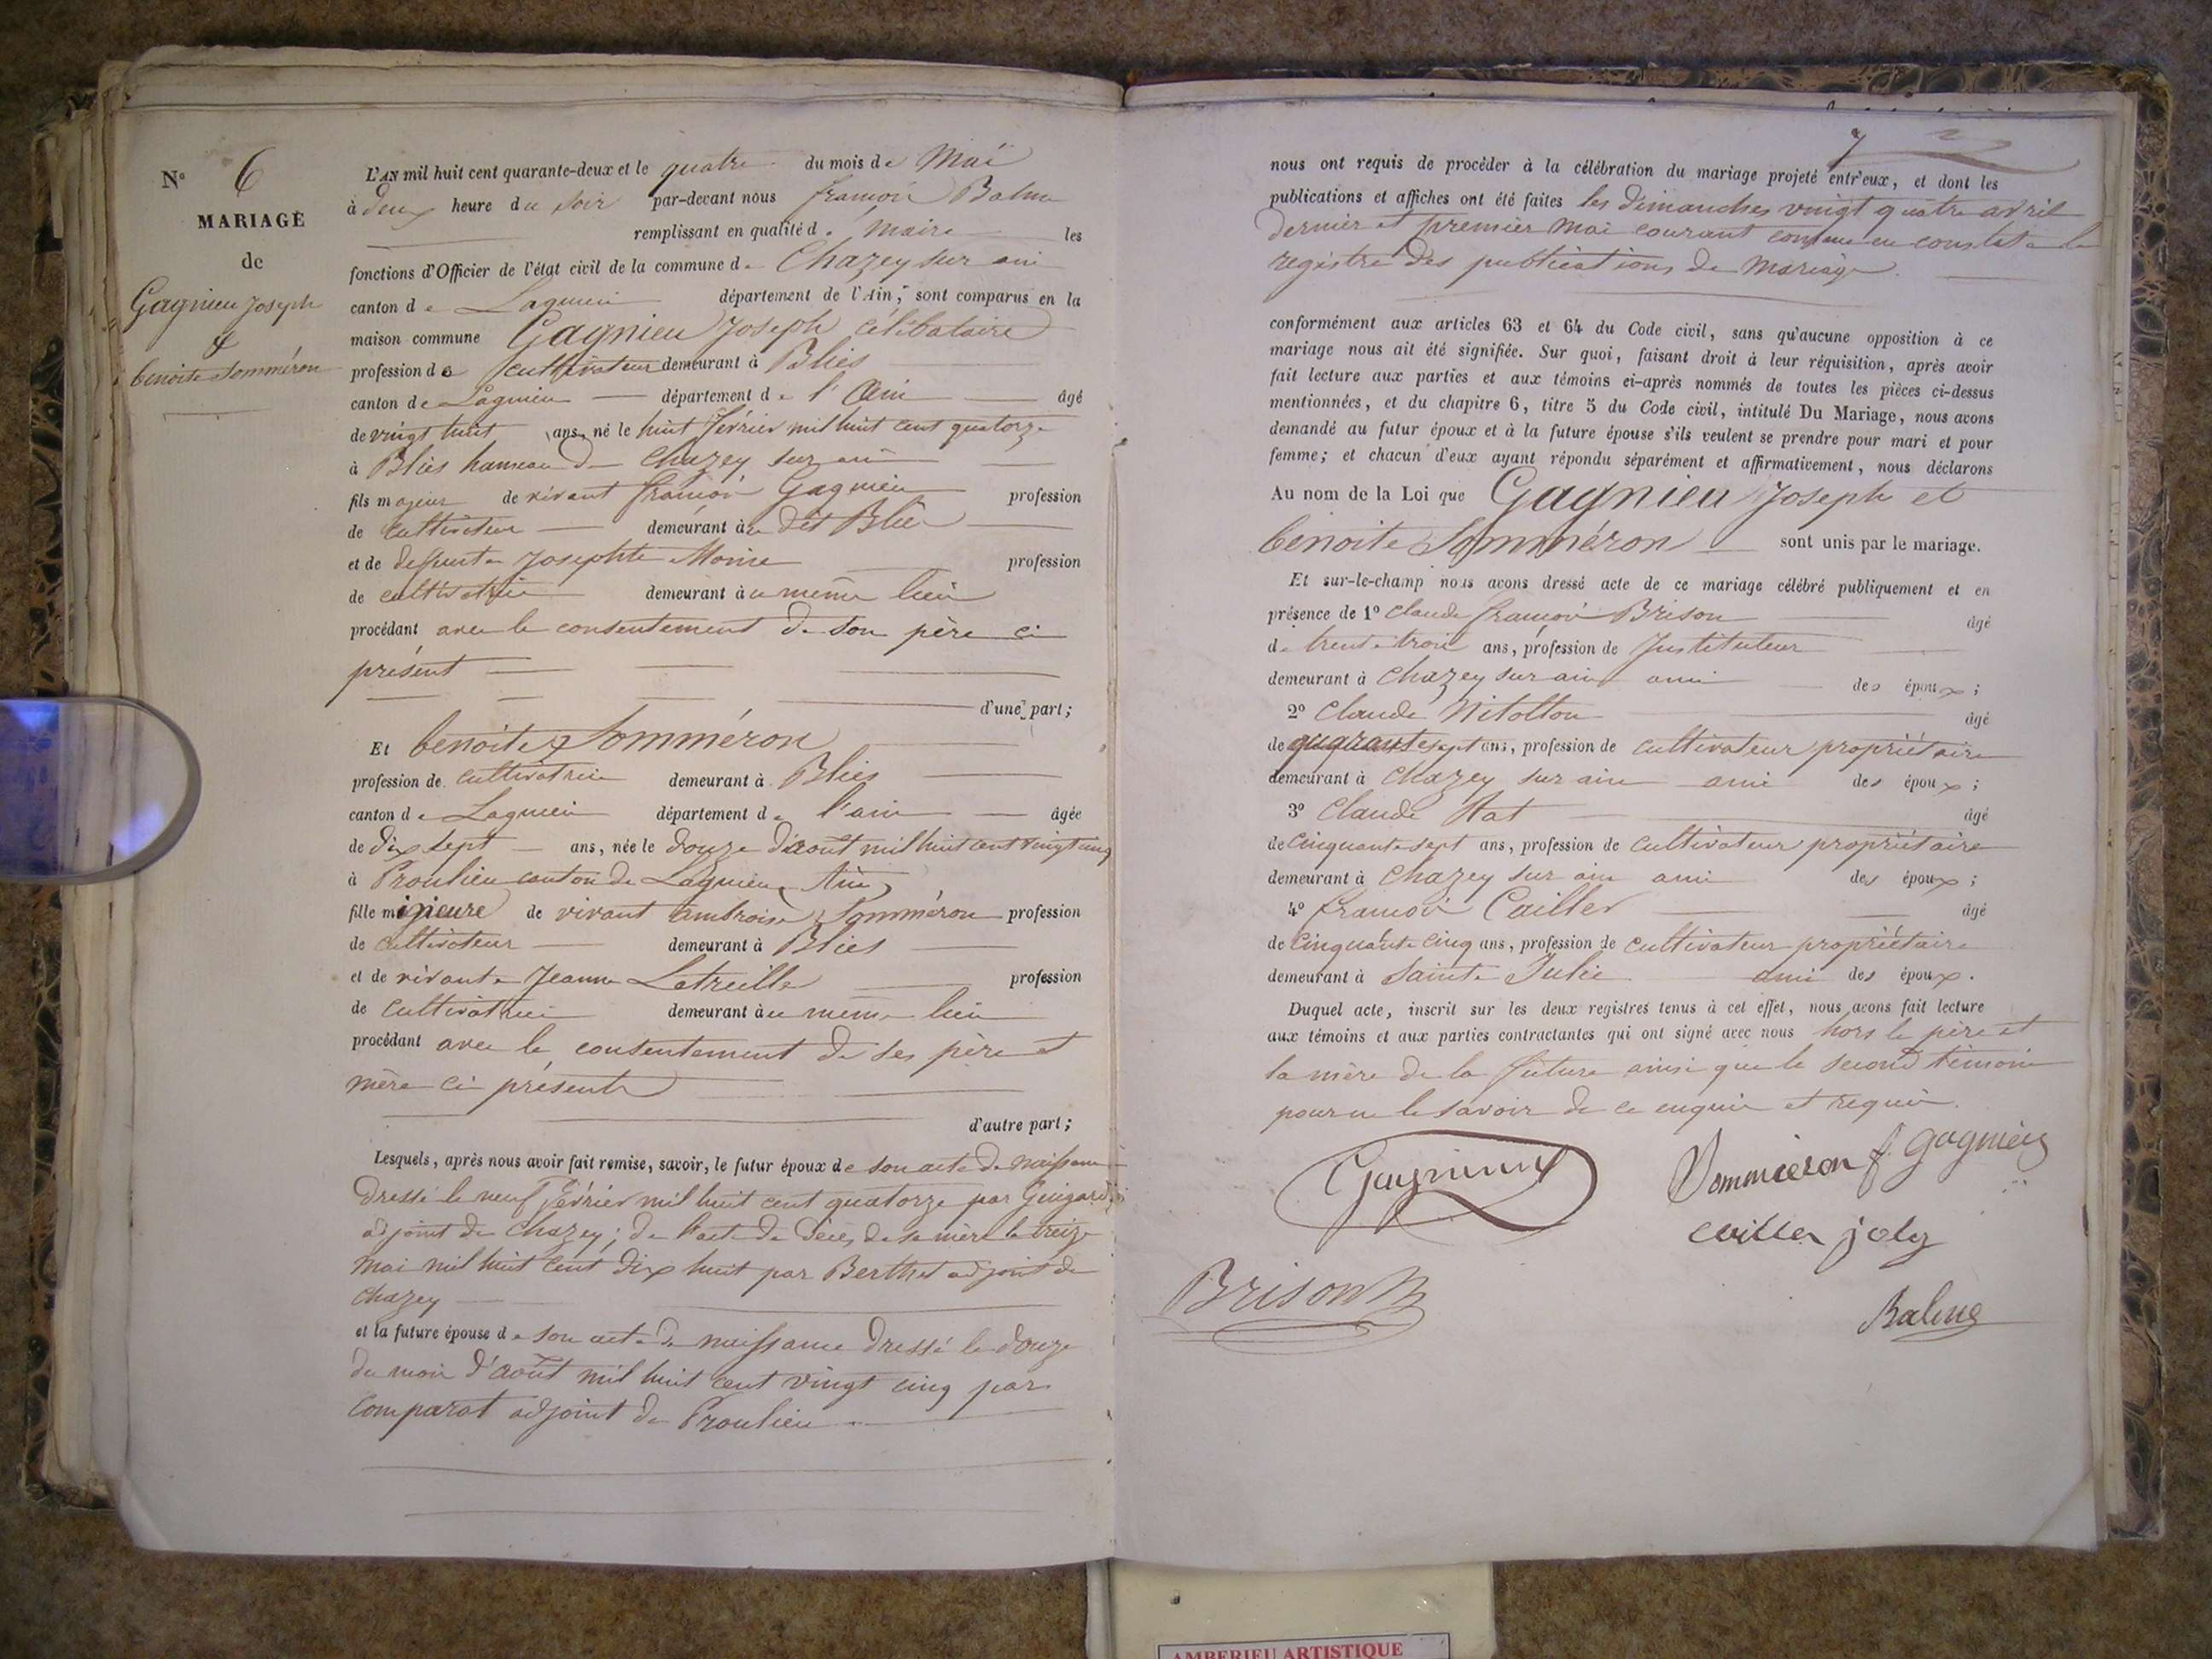 N° 6
MARIAGE
de
Gagnieu Joseph
&
benoite Somméron
L'AN mil huit cent quarante-deux et le quatre du mois de Mai
à deux heure du soir par-devant nous françois Balme
remplissant en qualité de maire les
fonctions d'Officier de l'état civil de la commune de Chazey sur ain
canton de Lagnieu département de l'Ain, sont comparus en la
maison commune Gagnieu Joseph célibataire
profession de cultivateur demeurant à Blies
canton de Lagnieu département de l'Ain âgé
de vingt huit ans, né le huit février mil huit cent quatorze
à Blies hameau de Chazey sur ain
fils majeur de vivant françois Gagnieu profession
de cultivateur demeurant au dit Blies
et de deffunte Josephte profession
de cultivatrice demeurant au même lieu
procédant avec le consentement de son père ci
présent
d'une part;
Et benoite Somméron
profession de cultivatrice demeurant à Blies
canton de Lagnieu département de l'ain âgée
de dix sept ans, née le douze d'août mil huit cent vingt cinq
à Proulieu canton de Lagnieu, Ain,
fille mineure de vivant ambroise Somméron profession
de cultivateur demeurant à Blies
et de vivante Jeanne Latreille profession
de cultivatrice demeurant au même lieu
procédant avec le consentement de ses père et
mère ci présents
d'autre part;
Lesquels, après nous avoir fait remise, savoir, le futur époux de son acte de naissance
dressé le neuf février mil huit cent quatorze par Guigard
adjoint de Chazey; de l'acte de décès de sa mère le treize
mai mil huit cent dix huit par Berthet adjoint de
Chazey
et la future épouse de son acte de naissance dressé le douze
du mois d'août mil huit cent vingt cinq par
Comparat adjoint de Proulieu
7
nous ont requis de procéder à la célébration du mariage projeté entr'eux, et dont les
publications et affiches ont été faites les dimanches vingt quatre avril
dernier et premier mai courant comme en constate le
registre des publications de mariage.
conformément aux articles 63 et 64 du Code civil, sans qu'aucune opposition à ce
mariage nous ait été signifiée. Sur quoi, faisant droit à leur réquisition, après avoir
fait lecture aux parties et aux témoins ci-après nommés de toutes les pièces ci-dessus
mentionnées, et du chapitre 6, titre 5 du Code civil, intitulé Du Mariage, nous avons
demandé au futur époux et à la future épouse s'ils veulent se prendre pour mari et pour
femme; et chacun d'eux ayant répondu séparément et affirmativement, nous déclarons
Au nom de la Loi que Gagnieu Joseph et
benoite Somméron sont unis par le mariage.
Et sur-le-champ nous avons dressé acte de ce mariage célébré publiquement et en
présence de 1° Claude françois Brison âgé
de trente trois ans, profession de Instituteur
demeurant à Chazey sur ain ami des époux;
2° Claude âgé
de quarante sept ans, profession de cultivateur propriétaire
demeurant à Chazey sur ain ami des époux;
3° Claude âgé
de Cinquante sept ans, profession de cultivateur propriétaire
demeurant à Chazey sur ain ami des époux;
4° françois Cailler âgé
de Cinquante cinq ans, profession de cultivateur propriétaire
demeurant à Sainte Julie ami des époux.
Duquel acte, inscrit sur les deux registres tenus à cet effet, nous avons fait lecture
aux témoins et aux parties contractantes qui ont signé avec nous hors le père et
la mère de la future ainsi que le second témoin
pour ne le savoir de ce enquis et requis.
Gagnieux
Sommeron f. gagnieu
cailler joly
Brison
Balme
AMBERIEU ARTISTIQUE